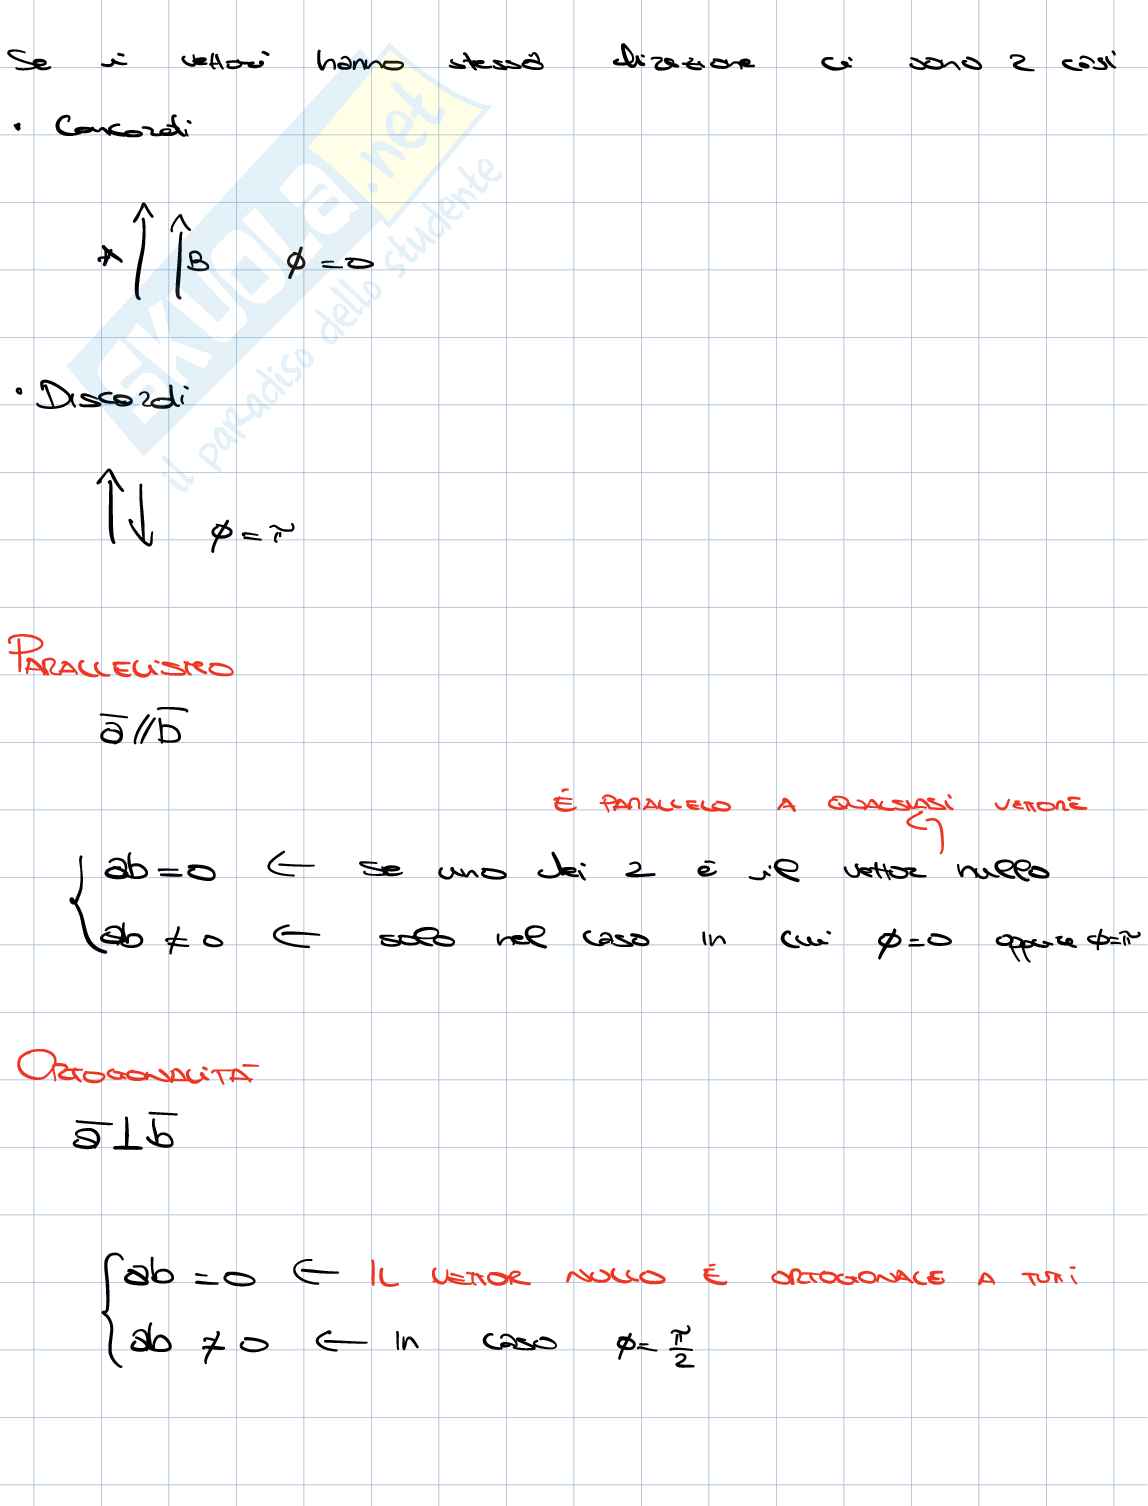 Se i vettori hanno stessa direzione ci sono 2 casi
• Concordi
A B ϕ = 0
• Discordi
ϕ = π
PARALLELISMO
a̅ // b̅
È PARALLELO A QUALSIASI VETTORE
ab = 0 ← se uno dei 2 è il vettor nullo
ab ≠ 0 ← solo nel caso in cui ϕ = 0 oppure ϕ = π
ORTOGONALITÀ
a̅ ⊥ b̅
ab = 0 ← IL VETTOR NULLO È ORTOGONALE A TUTTI
ab ≠ 0 ← in caso ϕ = π/2
SKUOLA.net
il paradiso dello studente